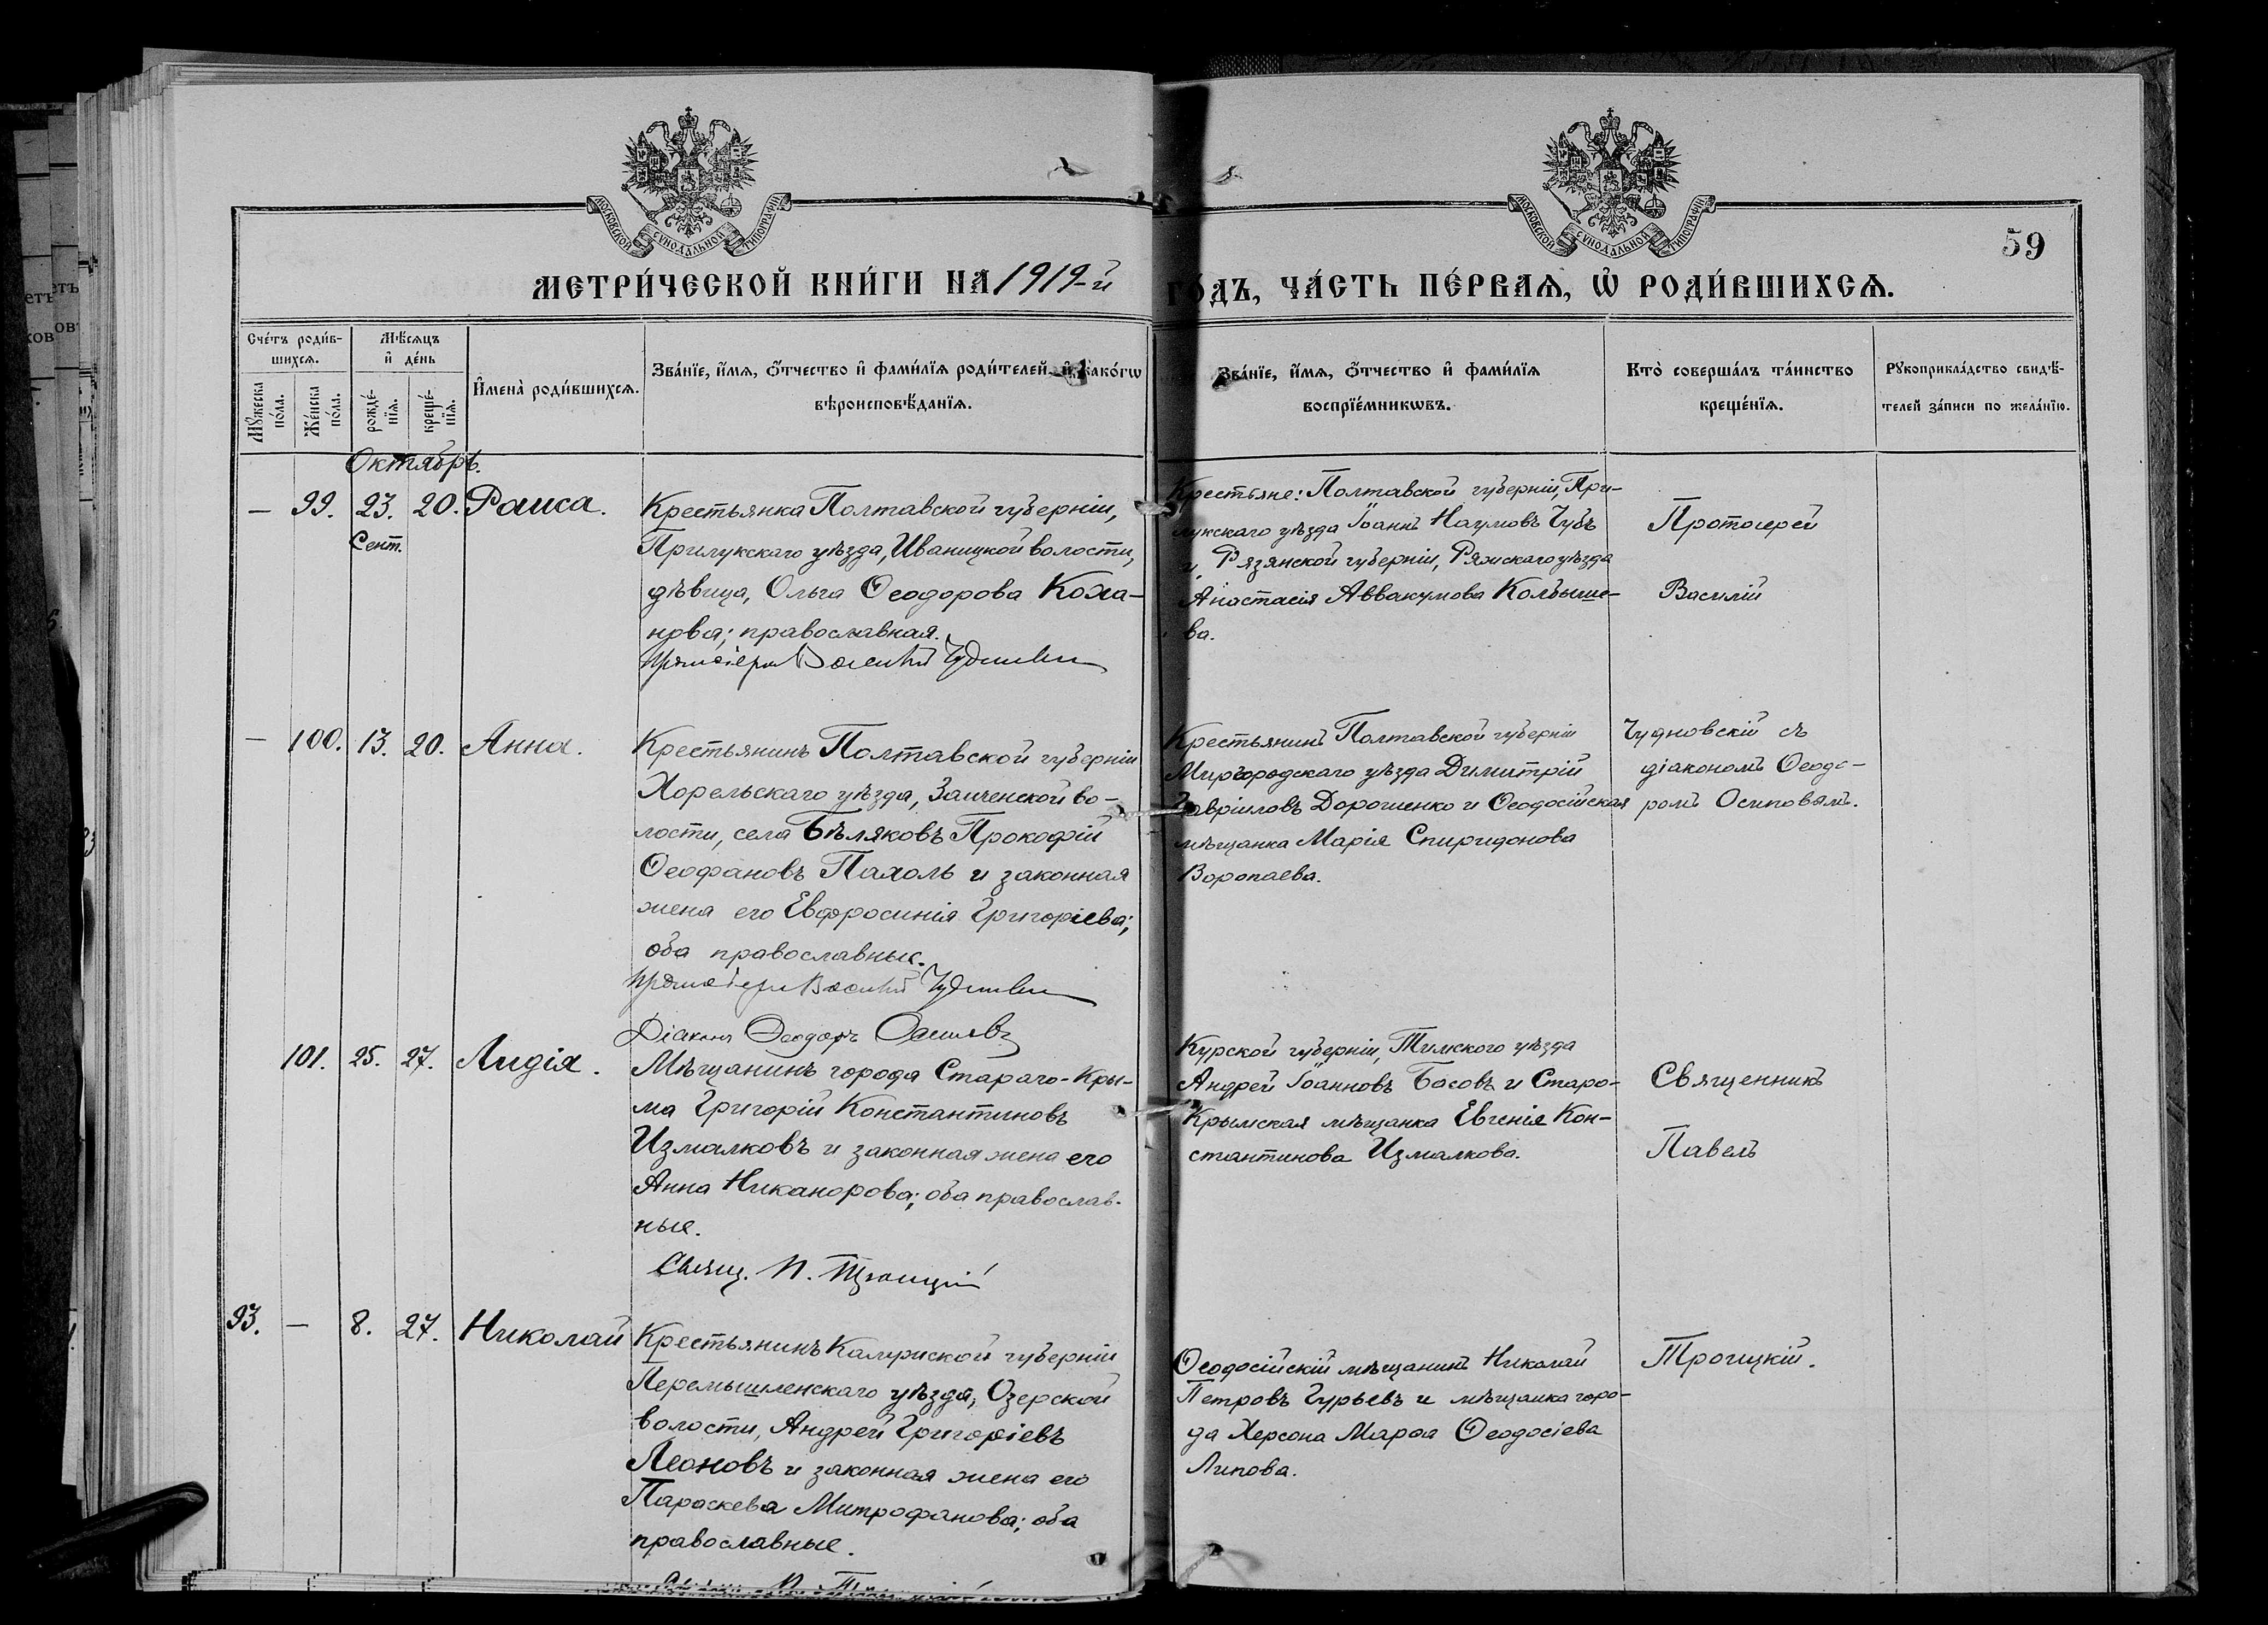 МОСКОВСКОЙ СѴНОДАЛЬНОЙ ТИПОГРАФІИ
МОСКОВСКОЙ СѴНОДАЛЬНОЙ ТИПОГРАФІИ
59
МЕТРИ́ЧЕСКОЙ КНИ́ГИ НА 1919-й
ГО́ДЪ, ЧА́СТЬ ПЕ́РВАѦ, Ѡ҆ РОДИ́ВШИХСѦ.
Сче́тъ роди́в-
шихсѧ.
Мꙋ́жеска по́ла.
Же́нска по́ла.
Мѣ́сѧцъ
и҆ де́нь
рожде́-
нїѧ.
креще́-
нїѧ.
И҆мена̀ роди́вшихсѧ.
Зва́нїе, и҆́мѧ, ѻ҆́тчество и҆ фами́лїѧ роди́телей и҆ како́гѡ
вѣроисповѣ́данїѧ.
Зва́нїе, и҆́мѧ, ѻ҆́тчество и҆ фами́лїѧ
воспрїе́мникѡвъ.
Кто̀ соверша́лъ та́инство
креще́нїѧ.
Рꙋкоприкла́дство свидѣ́-
телей за́писи по жела́нїю.
Октябрь.
— 99. 23. 20. Раиса.
Сент.
Крестьянка Полтавской губерніи,
Прилукскаго уѣзда, Иваницкой волости,
дѣвица, Ольга Ѳеодорова Коха-
нова; православная.
Протоіерей Василій Чудновскій
Крестьяне: Полтавской губерніи, При-
лукскаго уѣзда Іоаннъ Наумовъ Чубъ
и Рязанской губерніи, Ряжскаго уѣзда
Анастасія Аввакумова Колбыше-
ва.
Протоіерей
Василій
— 100. 13. 20. Анна.
Крестьянинъ Полтавской губерніи
Хорольскаго уѣзда, Заиченской во-
лости, села Бѣляковъ Прокофій
Ѳеофановъ Пахоль и законная
жена его Евфросинія Григоріева;
оба православные.
Протоіерей Василій Чудновскій
Діаконъ Ѳеодоръ Осиповъ
Крестьянинъ Полтавской губерніи
Миргородскаго уѣзда Димитрій
Гавріиловъ Дорошенко и Ѳеодосійская
мѣщанка Марія Спиридонова
Воропаева.
Чудновскій съ
діакономъ Ѳеодо-
ромъ Осиповымъ.
101. 25. 27. Лидія.
Мѣщанинъ города Стараго-Кры-
ма Григорій Константиновъ
Измалковъ и законная жена его
Анна Никанорова; оба православ-
ные.
Свящ. П. Троицкій
Курской губерніи, Тимского уѣзда
Андрей Іоанновъ Басовъ и Старо-
Крымская мѣщанка Евгенія Кон-
стантинова Измалкова.
Священникъ
Павелъ
93. — 8. 27. Николай
Крестьянинъ Калужской губерніи
Перемышленскаго уѣзда, Озерской
волости, Андрей Григоріевъ
Леоновъ и законная жена его
Параскева Митрофанова; оба
православные.
Ѳеодосійскій мѣщанинъ Николай
Петровъ Гурьевъ и мѣщанка горо-
да Херсона Марѳа Ѳеодосіева
Липова.
Троицкій.